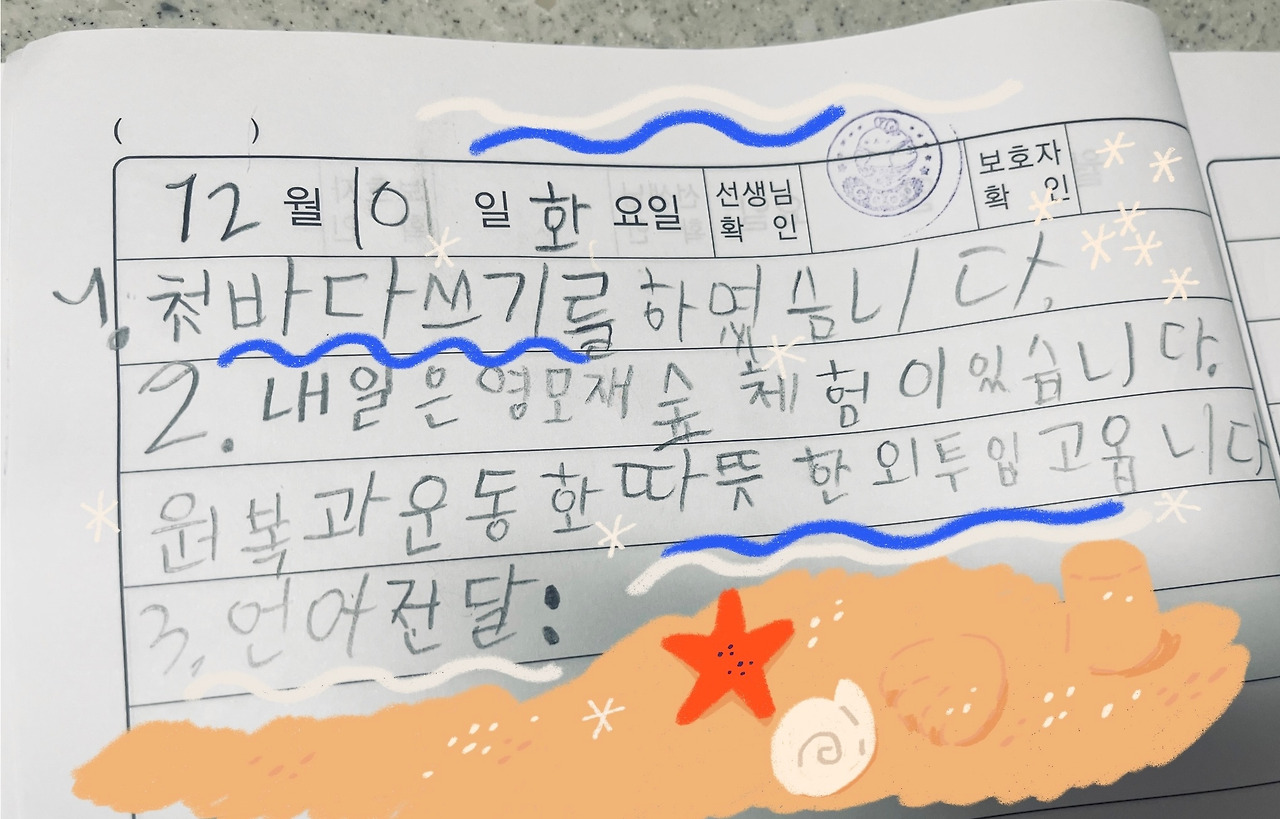 ( )
12 월 10 일 화 요일 선생님 확 인 보호자 확 인
1. 첫바다쓰기를 하였습니다.
2. 내일은 영모재 숲 체험이 있습니다.
원복과 운동화 따뜻한 외투입고옵니다
3. 언어전달: